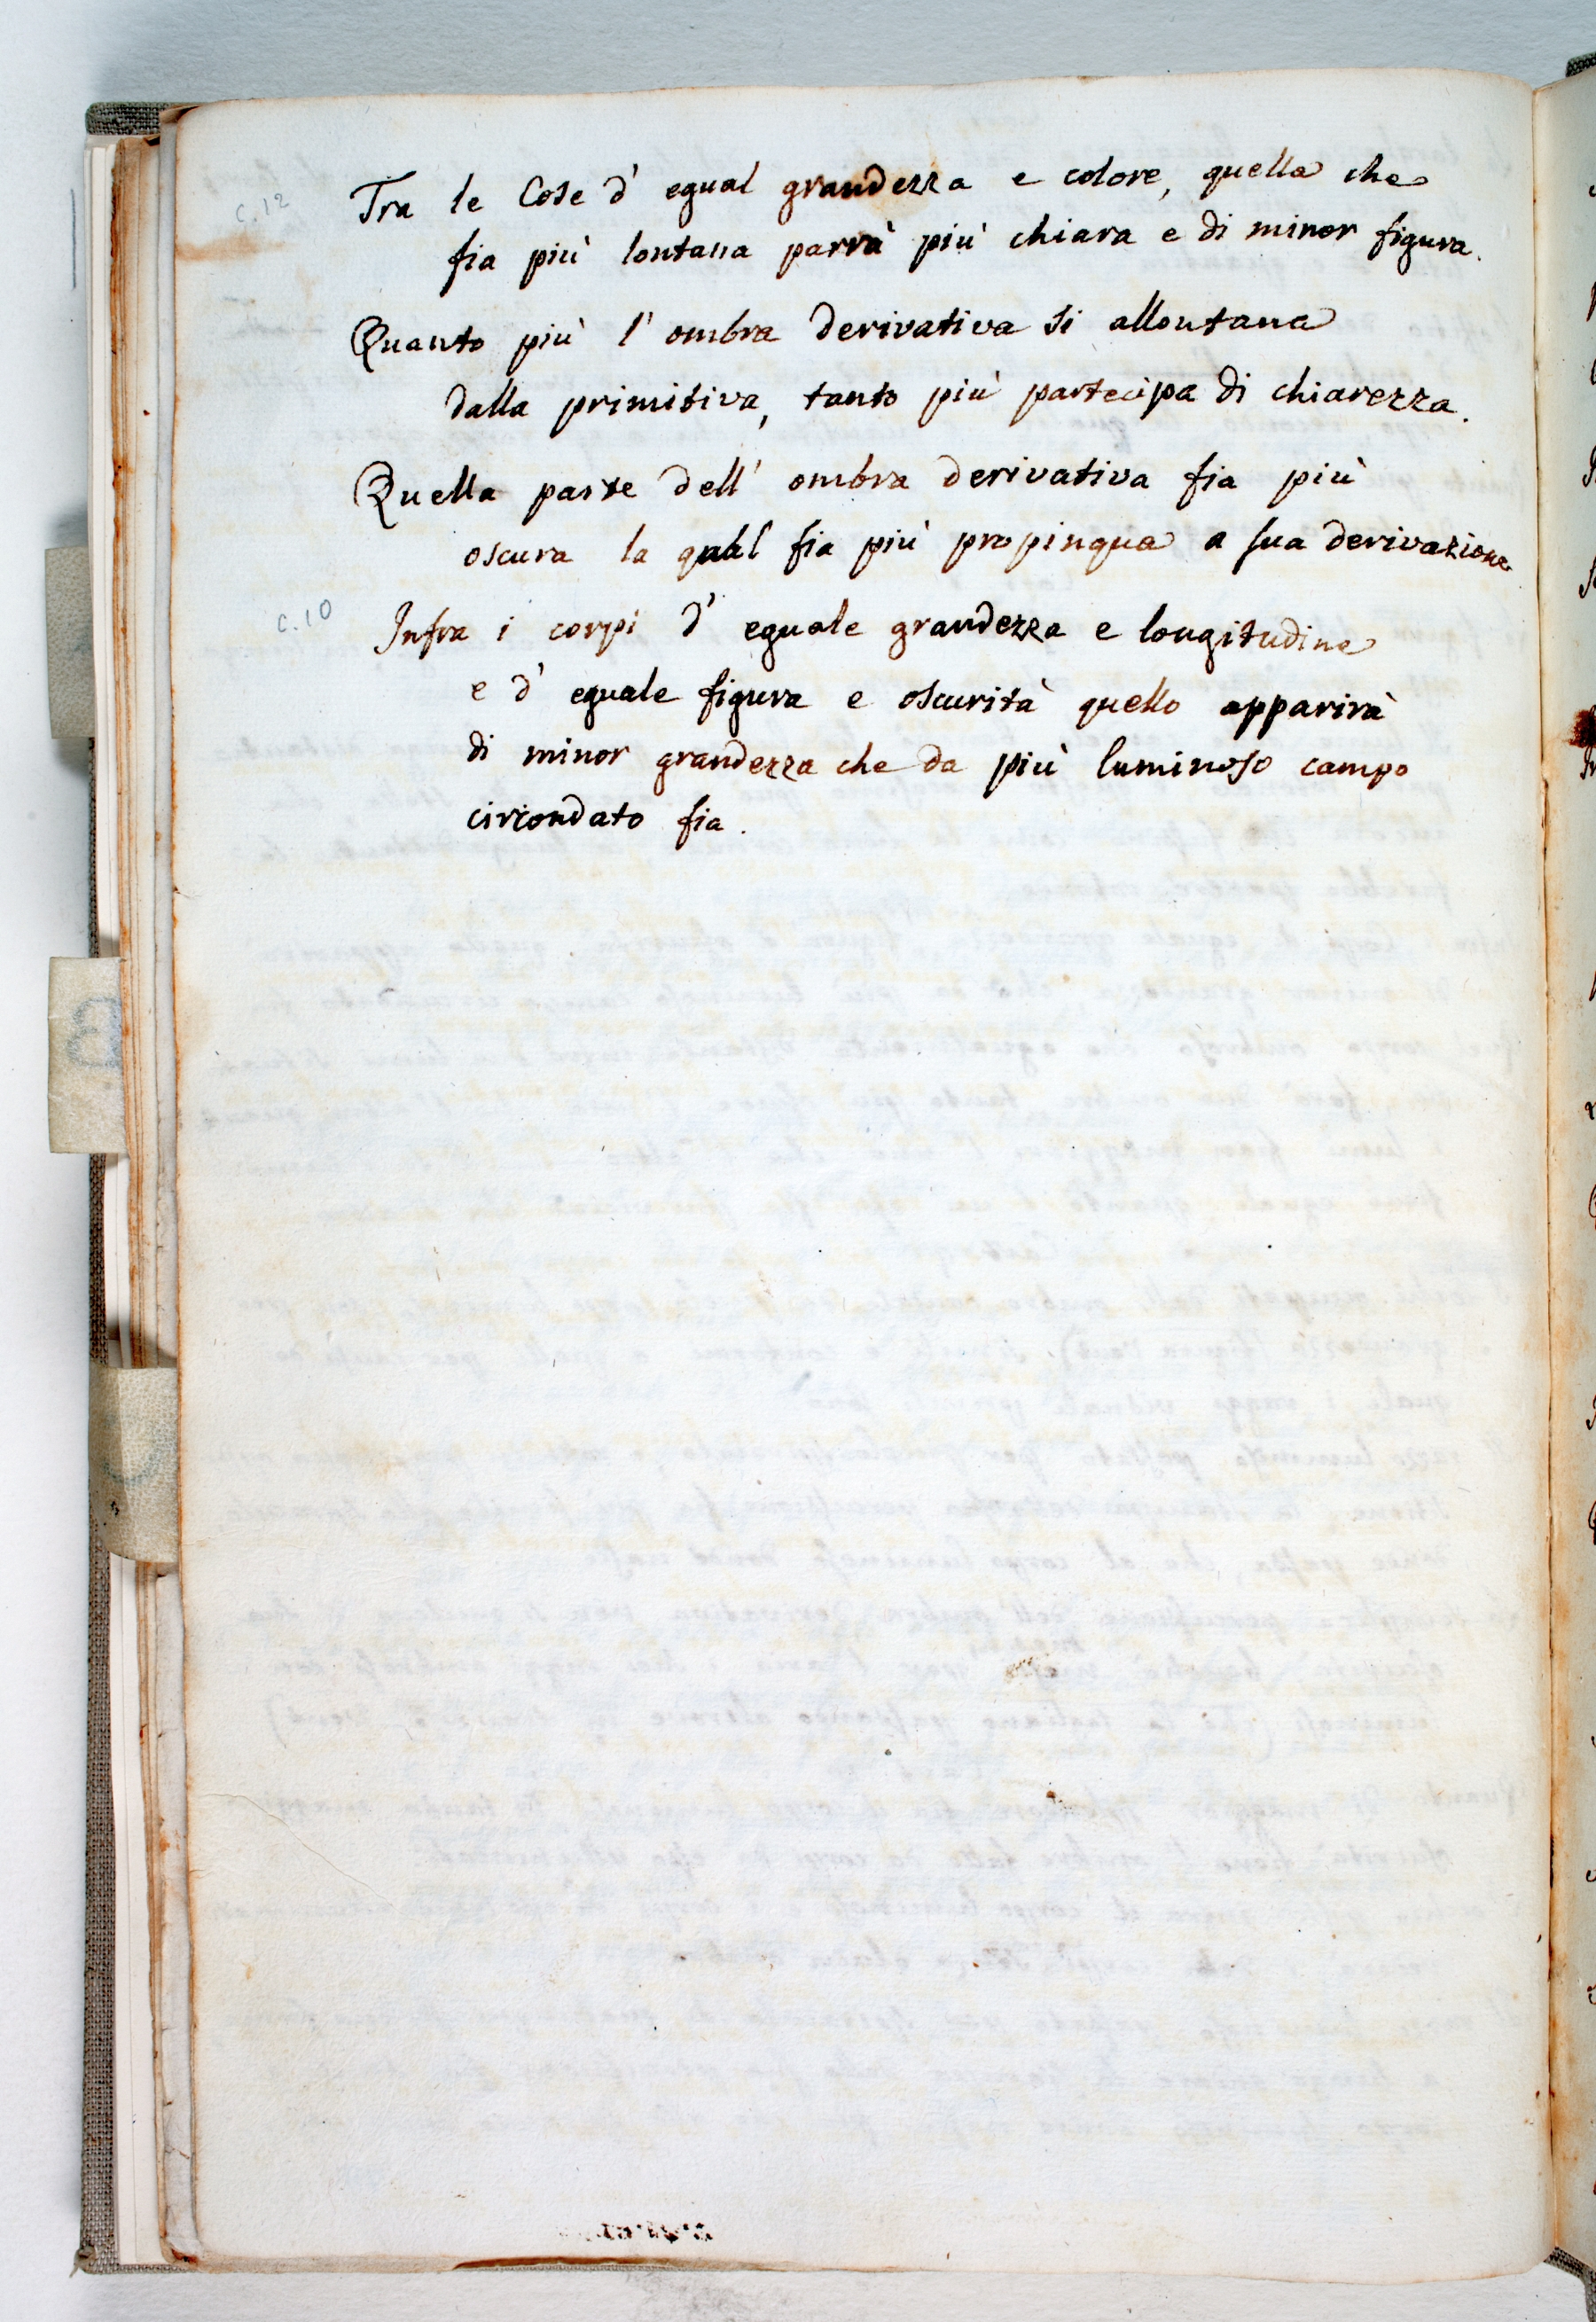 c. 12
Tra le Cose d' egual grandezza e colore, quella che
fia più lontana parrà più chiara e di minor figura.
Quanto più l' ombra derivativa si allontana
dalla primitiva, tanto più partecipa di chiarezza.
Quella parte dell' ombra derivativa fia più
oscura la qual fia più propinqua a sua derivazione
c. 10
Infra i corpi d' eguale grandezza e longitudine
e d' eguale figura e oscurità quello apparirà
di minor grandezza che da più luminoso campo
circondato fia.
B